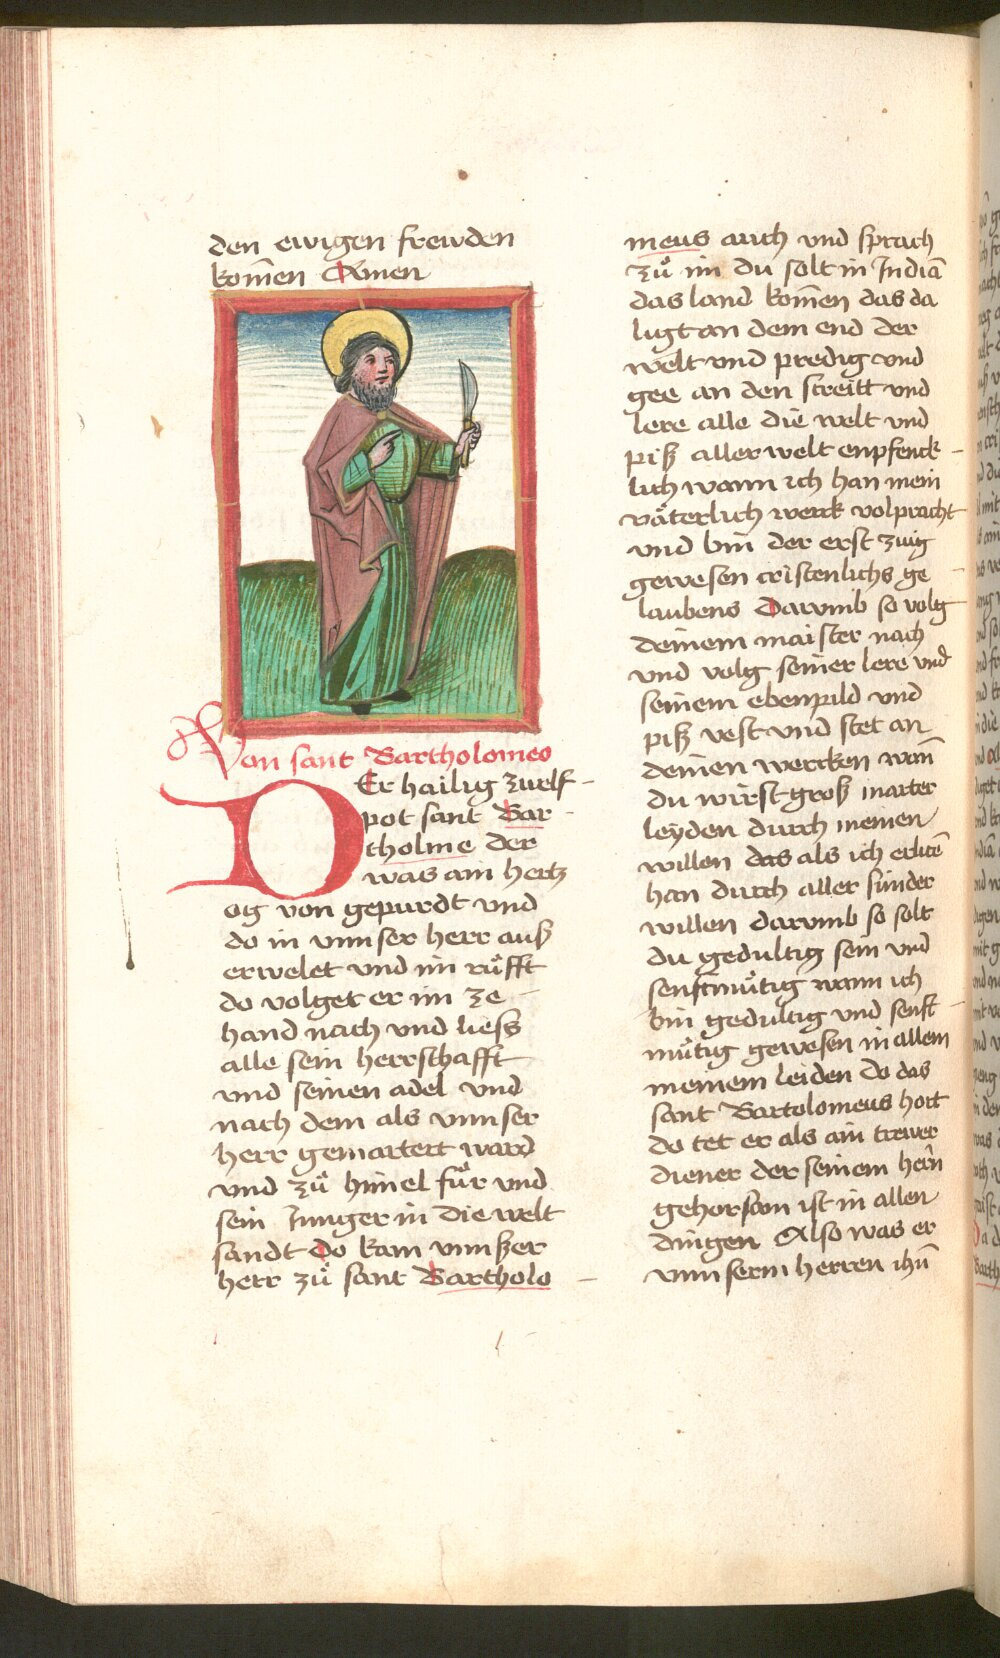 den ewigen frewden
kom̄en Amen
Von sant Bartholomeo
DEr hailig zwelf-
pot sant Bar-
tholme der
was ain hertz
og von gepurdt vnd
do in vnnser herr auß
erwelet vnd im růfft
do volget er im ze
hand nach vnd liess
alle sein herrschafft
vnd seinen adel vnd
nach dem als vnnser
herr gemartert ward
vnd zů himel fůr vnd
sein Junger in die welt
sandt do kam vnnßer
herr zů sant Bartholo-
meus auch vnd sprach
zů im du solt in Indiā
das land kom̄en das da
lugt an dem end der
welt vnd predig vnd
gee an den streitt vnd
lere alle die welt vnd
piß aller welt enpfenck-
lich wann ich han mein
väterlich werck volpracht
vnd bin der erst zwig
gewesen cristenlichs ge-
laubens Darumb so volg
deinem maister nach
vnd volg seiner lere vnd
seinem ebenpild vnd
piß vest vnd stet an
deinen wercken wañ
du wirst groß marter
leyden durch meinen
willen das als ich erlitē
han durch aller sünder
willen darumb so solt
du gedultig sein vnd
senftmůtig wann ich
bin gedultig vnd senft-
můtig gewesen in allem
meinem leiden do das
sant Bartolomeus hort
do tet er als ain trewer
diener der seinem herñ
gehorsam ist in allen
dingen Also was er
vnnserm herren ihū